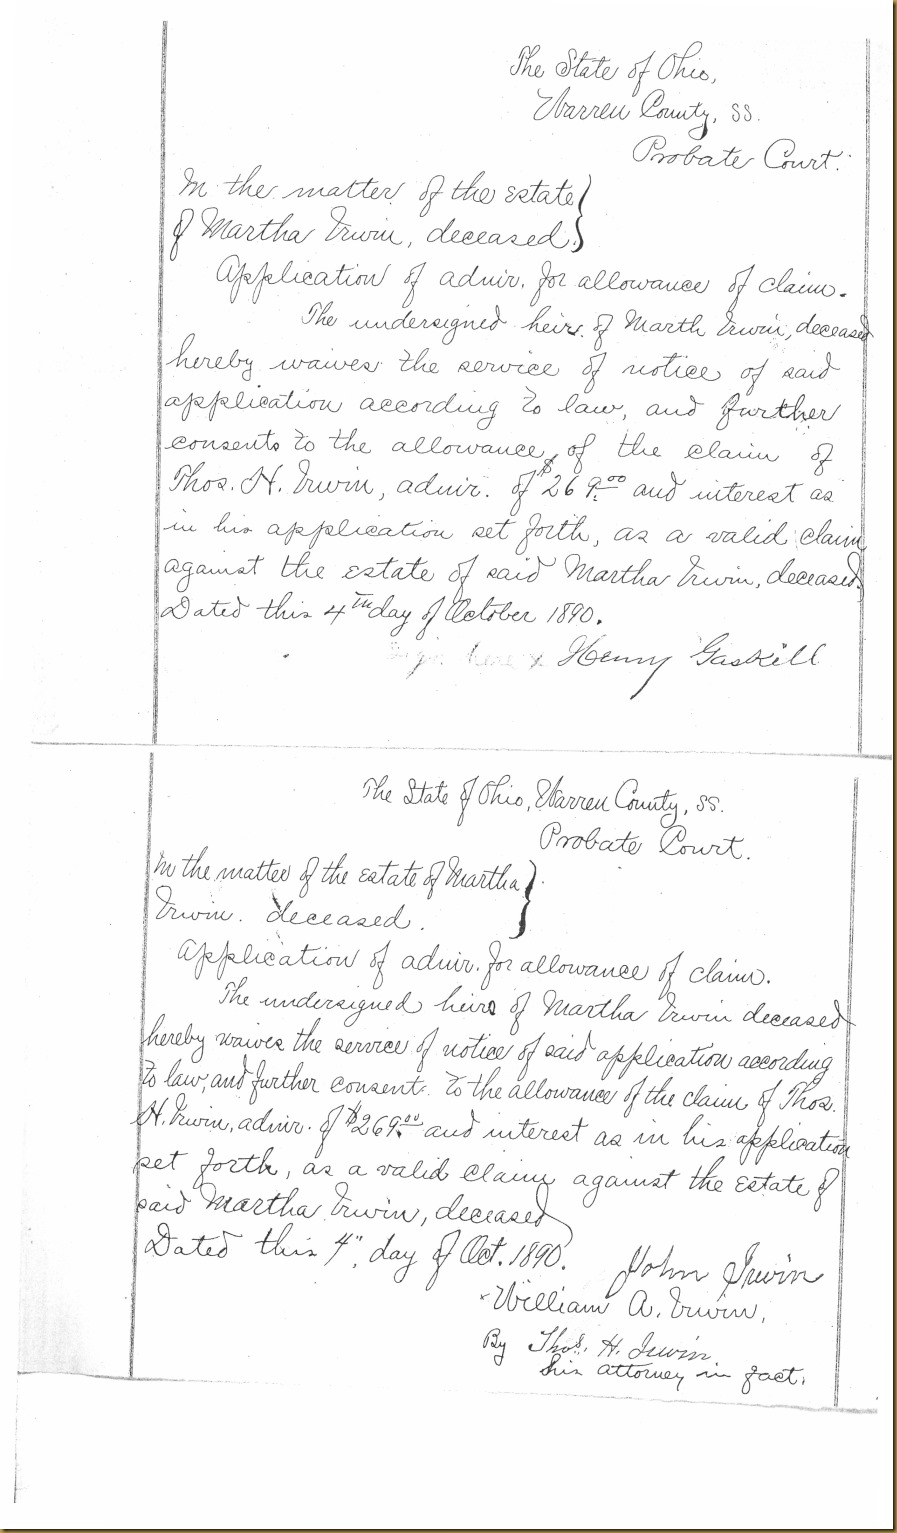 The State of Ohio,
Warren County, SS.
Probate Court.
In the matter of the estate }
of Martha Irwin, deceased. }
Application of admr. for allowance of claim.
The undersigned heirs of Marth Irwin, deceased
hereby waives the service of notice of said
application according to law, and further
consents to the allowance of the claim of
Thos. H. Irwin, admr. of $269.00 and interest as
in his application set forth, as a valid claim
against the estate of said Martha Irwin, deceased.
Dated this 4th day of October 1890.
Sign here x Henry Gaskill
The State of Ohio, Warren County, SS.
Probate Court.
In the matter of the estate of Martha }
Irwin. deceased. }
Application of admr. for allowance of claim.
The undersigned heirs of Martha Irwin deceased
hereby waives the service of notice of said application according
to law, and further consent to the allowance of the claim of Thos.
H. Irwin, admr. of $269.00 and interest as in his application
set forth, as a valid claim against the estate of
said Martha Irwin, deceased
Dated this 4" day of Oct. 1890.
John Irwin
William A. Irwin,
By Thos. H. Irwin
his attorney in fact.